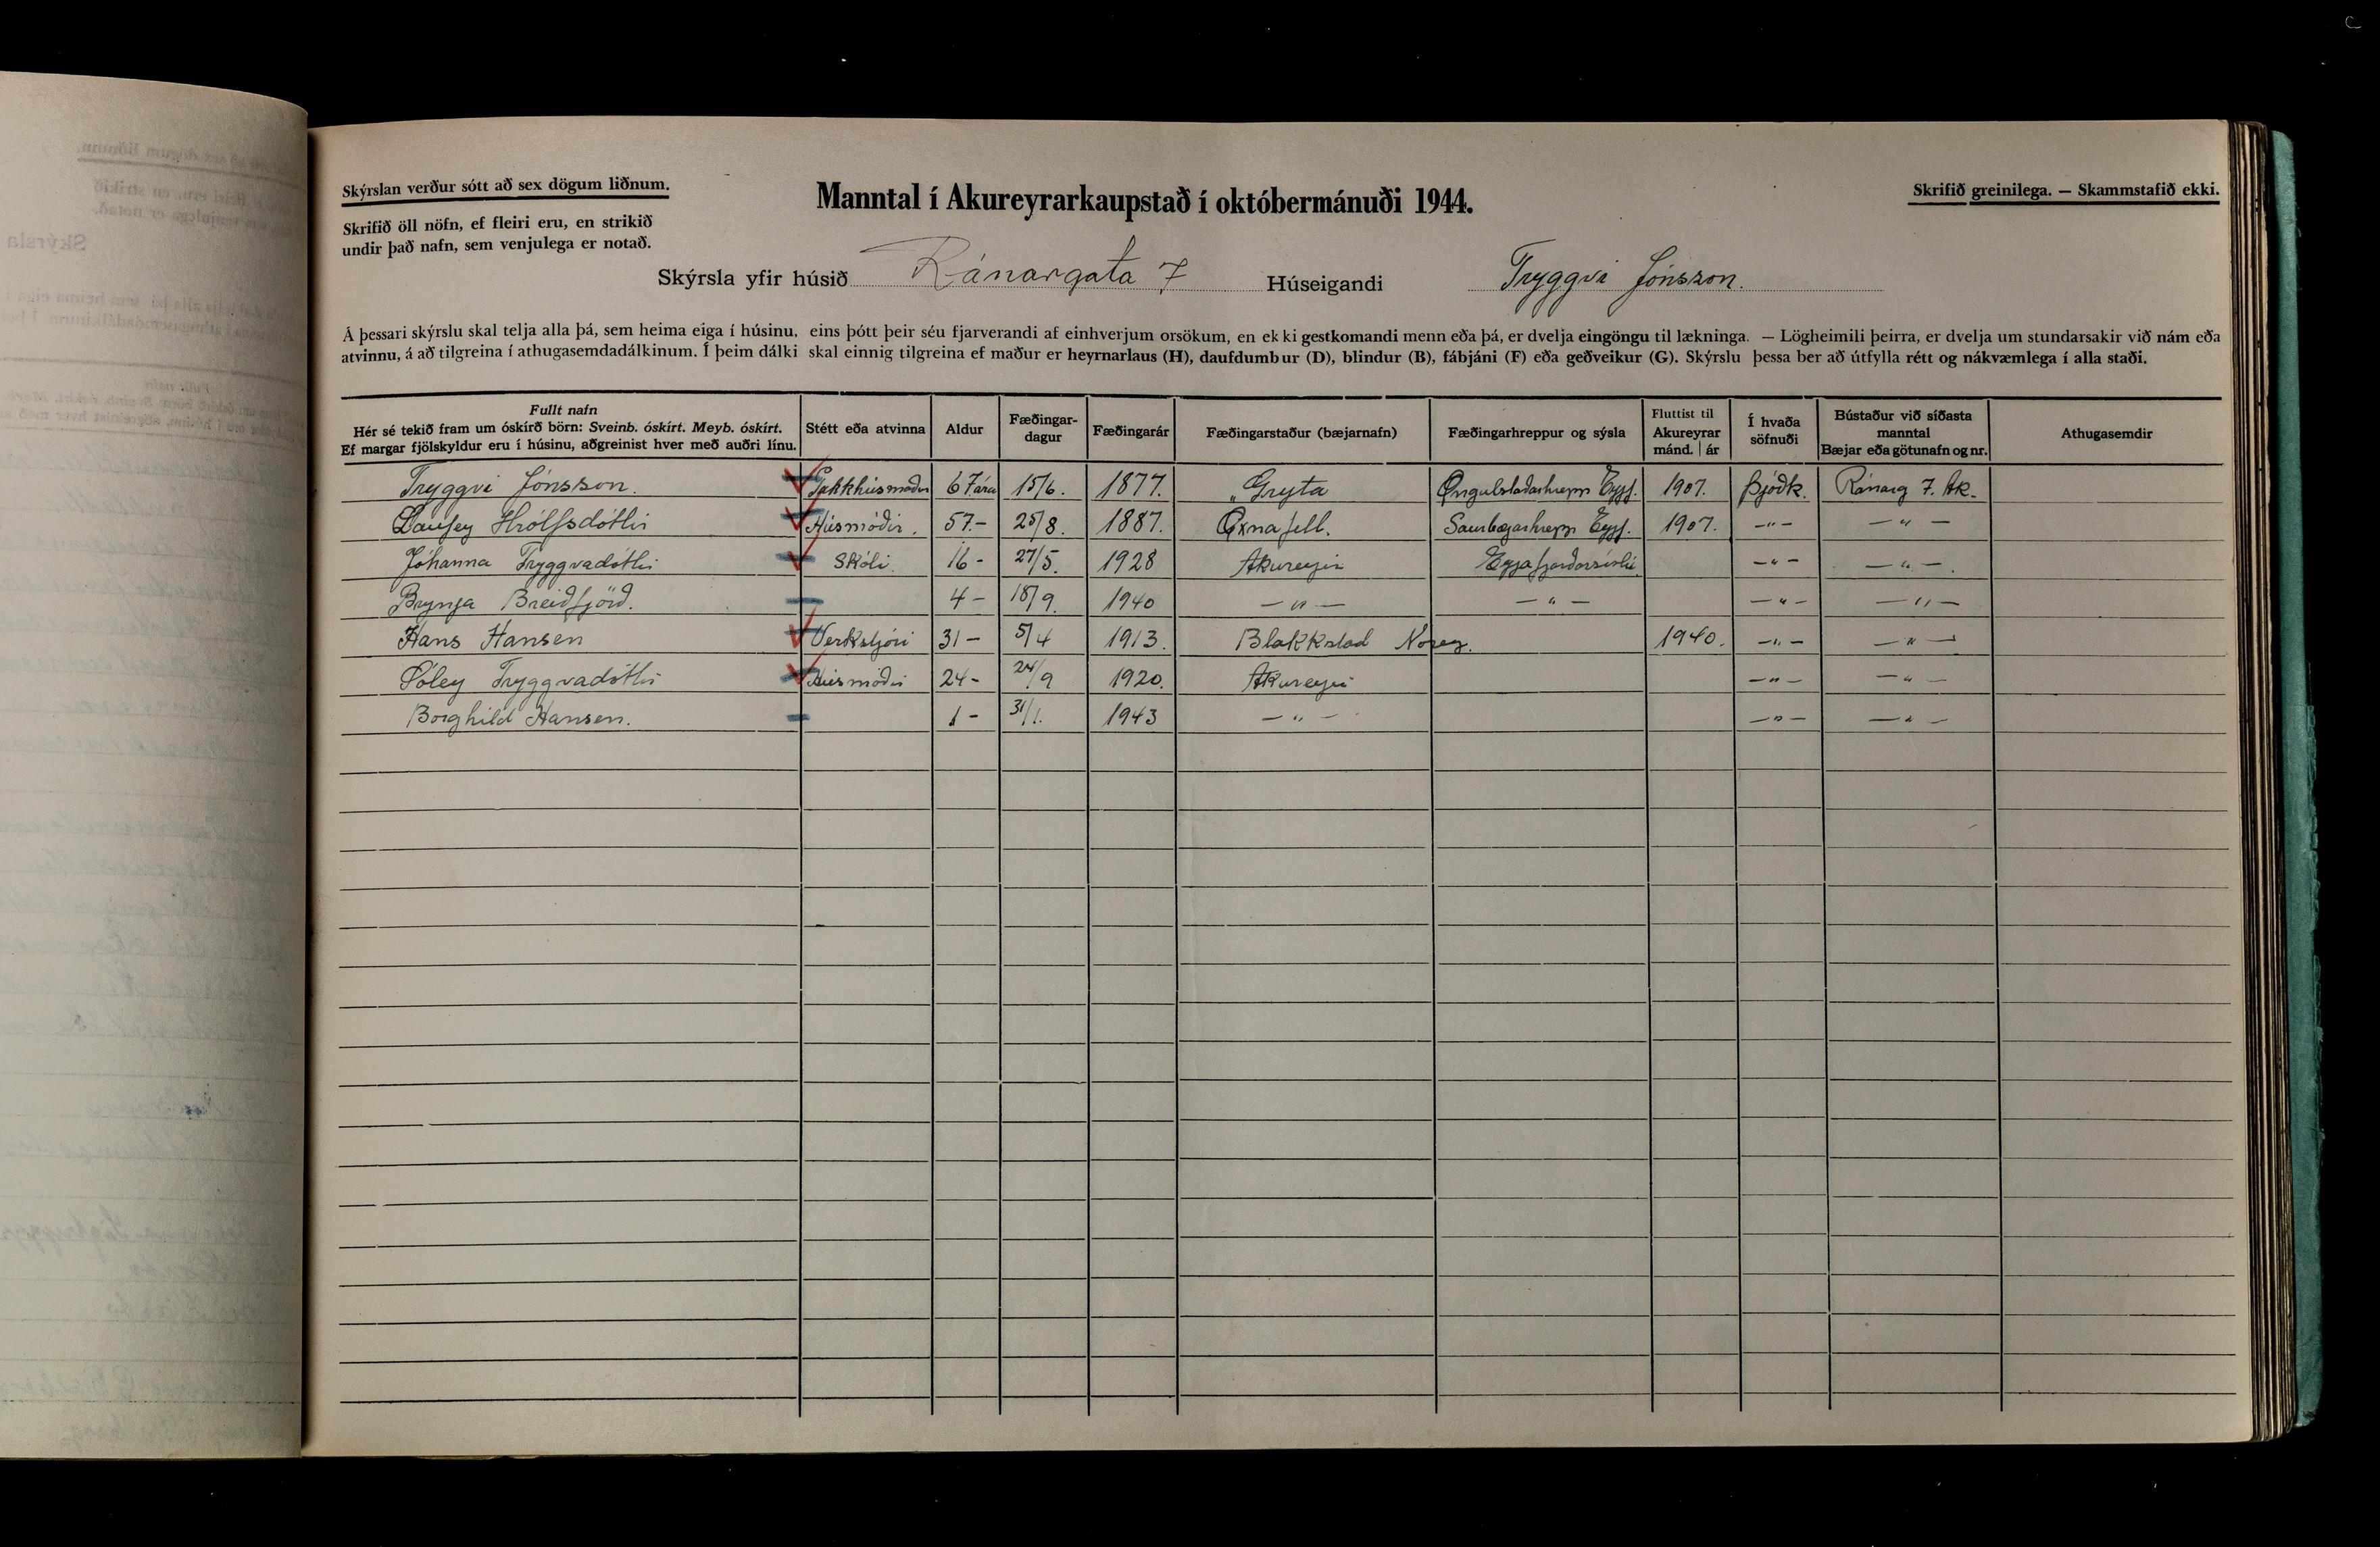 Skýrslan verður sótt að sex dögum liðnum.
Manntal í Akureyrarkaupstað í októbermánuði 1944.
Skrifið greinilega. — Skammstafið ekki.
Skrifið öll nöfn, ef fleiri eru, en strikið
undir það nafn, sem venjulega er notað.
Skýrsla yfir húsið Ránargata 7 Húseigandi Tryggvi Jónsson.
Á þessari skýrslu skal telja alla þá, sem heima eiga í húsinu, eins þótt þeir séu fjarverandi af einhverjum orsökum, en ekki gestkomandi menn eða þá, er dvelja eingöngu til lækninga. — Lögheimili þeirra, er dvelja um stundarsakir við nám eða
atvinnu, á að tilgreina í athugasemdadálkinum. Í þeim dálki skal einnig tilgreina ef maður er heyrnarlaus (H), daufdumbur (D), blindur (B), fábjáni (F) eða geðveikur (G). Skýrslu þessa ber að útfylla rétt og nákvæmlega í alla staði.
Fullt nafn
Hér sé tekið fram um óskírð börn: Sveinb. óskírt. Meyb. óskírt.
Ef margar fjölskyldur eru í húsinu, aðgreinist hver með auðri línu.
Stétt eða atvinna
Aldur
Fæðingar-
dagur
Fæðingarár
Fæðingarstaður (bæjarnafn)
Fæðingarhreppur og sýsla
Fluttist til
Akureyrar
mánd. | ár
Í hvaða
söfnuði
Bústaður við síðasta
manntal
Bæjar eða götunafn og nr.
Athugasemdir
Tryggvi Jónsson. Pakkhúsmaður 67 ára 15/6. 1877. Grýta Öngulstaðarhrepp Eyjf. 1907. Þjóðk. Ránarg 7. Ak.
Laufey Hrólfsdóttir Húsmóðir. 57.- 25/8. 1887. Öxnafell. Saurbæjarhrepp Eyjf. 1907. -"- -"-
Jóhanna Tryggvadóttir Skóli. 16 - 27/5. 1928 Akureyri Eyjafjarðarsýslu. -"- -"-.
Brynja Breiðfjörð. 4 - 18/9. 1940 -"- -"- -"- -"-
Hans Hansen Verkstjóri 31 - 5/4 1913. Blakkstad Noreg. 1940. -"- -"-
Sóley Tryggvadóttir Húsmóðir 24 - 24/9 1920. Akureyri -"- -"-
Borghild Hansen. 1 - 31/1. 1943 -"- -"- -"-